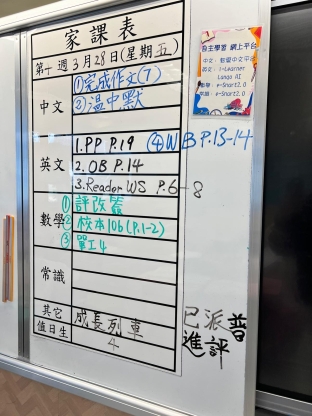 家課表
第十週3月28日(星期五)
中文
①完成作文(7)
②溫中默
英文
1.PP P.19 ④WB P.13-14
2.OB P.14
3.Reader WS P.6-8
數學
①評改簽
②校本10b(P.1-2)
③單工4
常識
其它
成長列車
值日生
4
已派普
進評
自主學習 網上平台
i-Learner
Lango AI
e-Smart2.0
e-Smart2.0